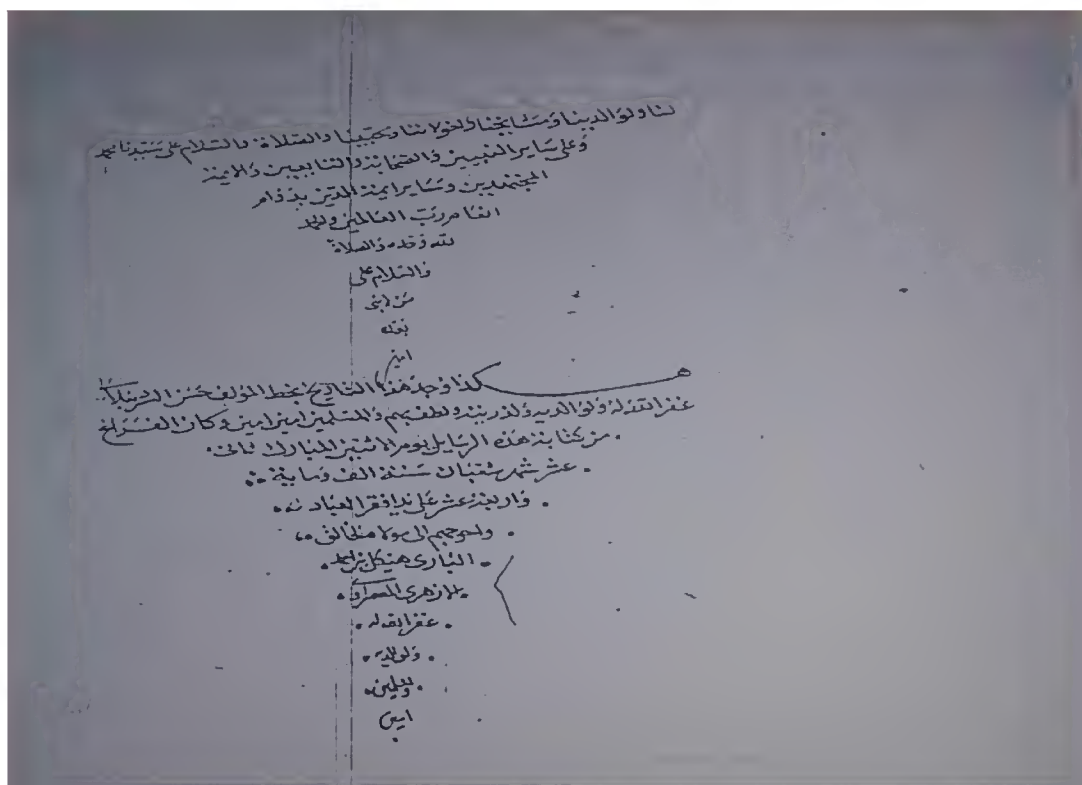 لنا ولوالدينا ومشايخنا ولاخواننا ومحبينا والصلاة والسلام على سيدنا محمد
وعلى ساير النبيين والصحابة والتابعين والايمة
المجتهدين وساير ايمة الدين بدوام
القاهر رب العالمين والحمد
لله وحده والصلاة
والسلام على
من لا نبى
بعده
امين
هكذا وجد هذا التاريخ بخط المؤلف حسن الشرنبلالى
غفر الله له ولوالديه ولذريته ولطف بهم والمسلمين امين امين وكان الفراغ
من كتابة هذه الرسايل يوم الاثنين المبارك ثانى
عشر شهر شعبان سنة الف وماية
واربعة عشر على يد افقر العباد
واحوجهم الى مولاه الخالق
البارى هيكل بن احمد
الازهرى
غفر الله له
ولوالديه
وللمسلمين
امين